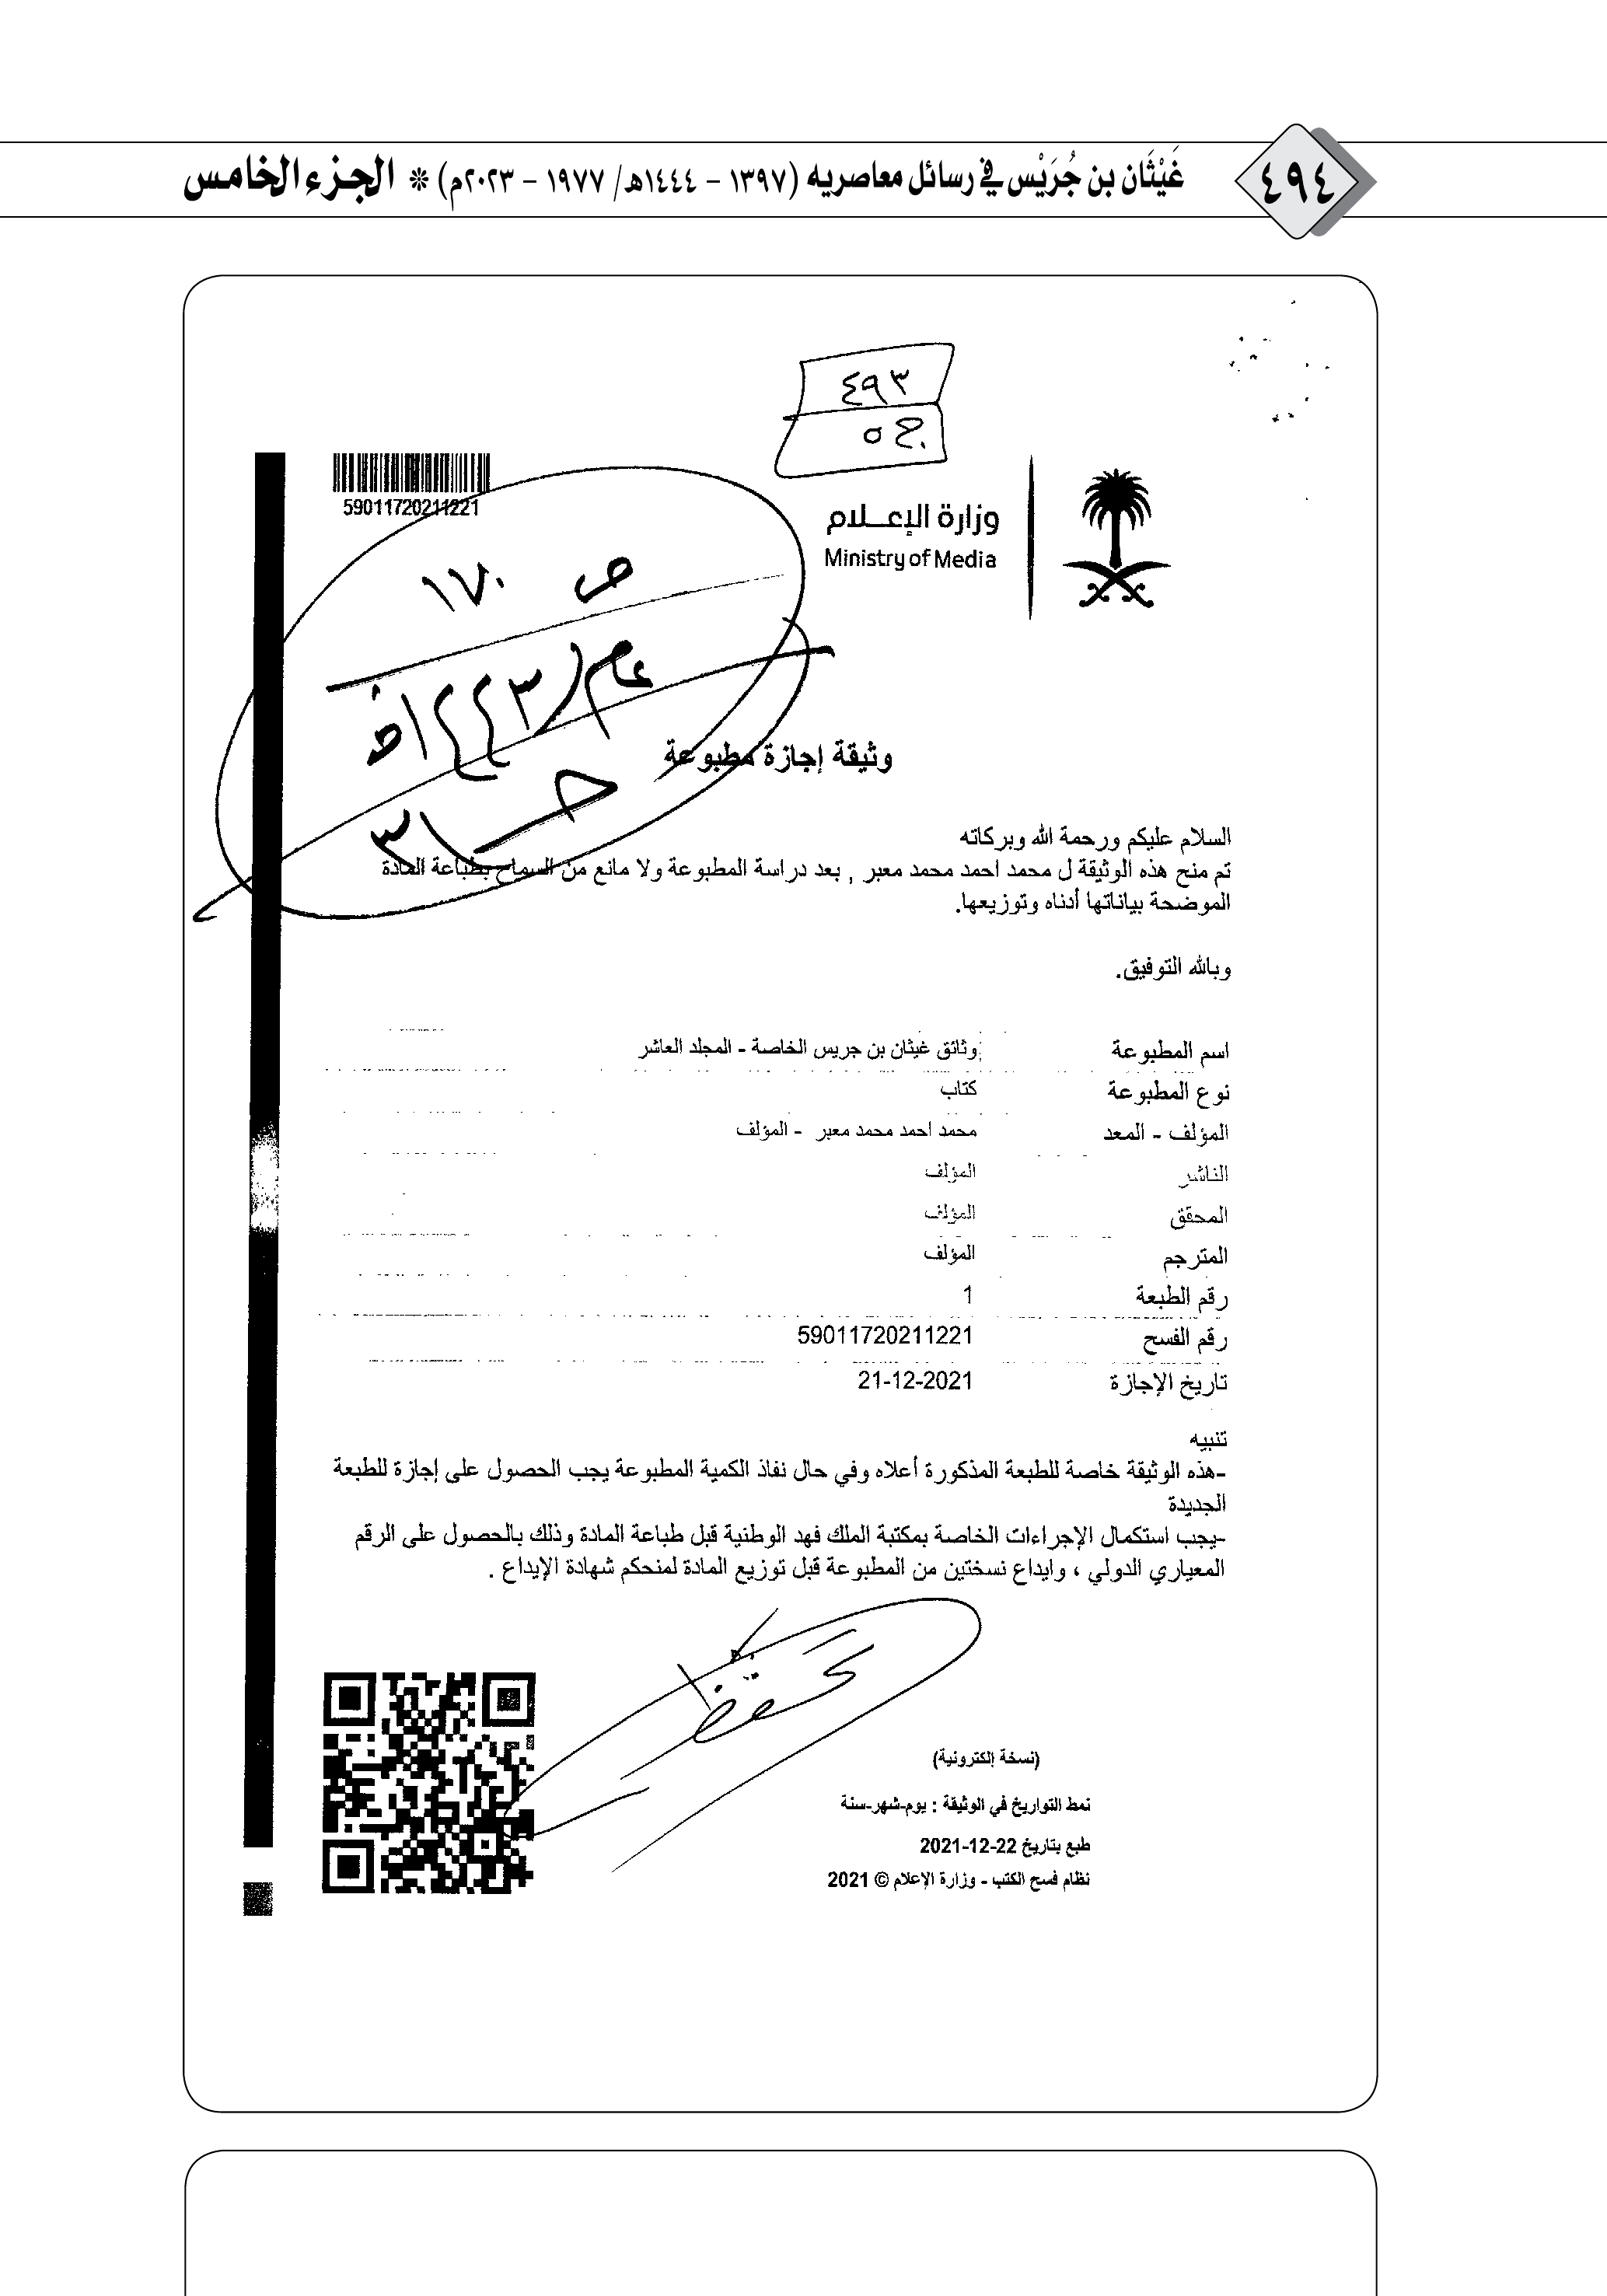 ٤٩٤
غَيْثَان بن جُرَيْس في رسائل معاصريه (١٣٩٧ - ١٤٤٤هـ/ ١٩٧٧ - ٢٠٢٣م) * الجزء الخامس
٤٩٣
ج ٥
59011720211221
وزارة الإعــلام
Ministry of Media
ص ١٧٠
عام / ١٤٤٣هـ
وثيقة إجازة مطبوعة
السلام عليكم ورحمة الله وبركاته
تم منح هذه الوثيقة ل محمد احمد محمد معبر , بعد دراسة المطبوعة ولا مانع من السماح بطباعة المادة
الموضحة بياناتها أدناه وتوزيعها.
وبالله التوفيق.
اسم المطبوعة وثائق غيثان بن جريس الخاصة - المجلد العاشر
نوع المطبوعة كتاب
المؤلف - المعد محمد احمد محمد معبر - المؤلف
الناشر المؤلف
المحقق المؤلف
المترجم المؤلف
رقم الطبعة 1
رقم الفسح 59011720211221
تاريخ الإجازة 21-12-2021
تنبيه
-هذه الوثيقة خاصة للطبعة المذكورة أعلاه وفي حال نفاذ الكمية المطبوعة يجب الحصول على إجازة للطبعة
الجديدة
-يجب استكمال الإجراءات الخاصة بمكتبة الملك فهد الوطنية قبل طباعة المادة وذلك بالحصول على الرقم
المعياري الدولي ، وايداع نسختين من المطبوعة قبل توزيع المادة لمنحكم شهادة الإيداع .
(نسخة إلكترونية)
نمط التواريخ في الوثيقة : يوم-شهر-سنة
طبع بتاريخ 22-12-2021
نظام فسح الكتب - وزارة الإعلام © 2021